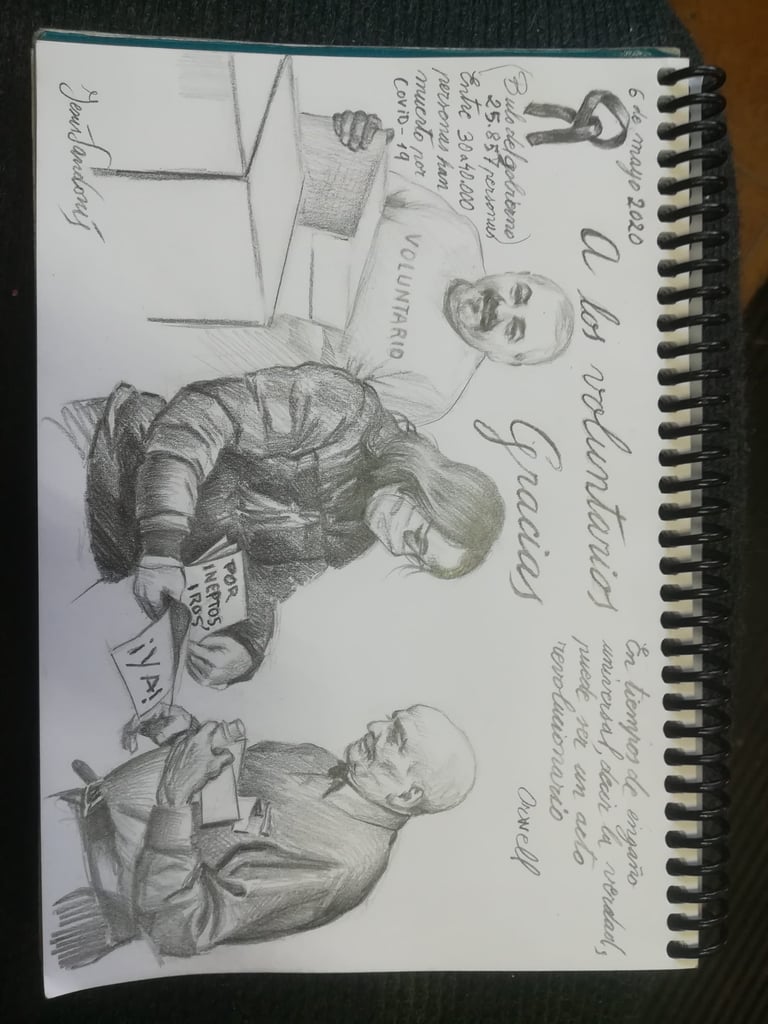 6 de mayo 2020
A los voluntarios
Gracias
(Bulo del gobierno
25.857 personas)
Entre 30 y 40.000
personas han
muerto por
Covid-19
VOLUNTARIO
En tiempos de engaño
universal, decir la verdad,
puede ser un acto
revolucionario
Orwell
POR
INEPTOS,
IROS
¡YA!